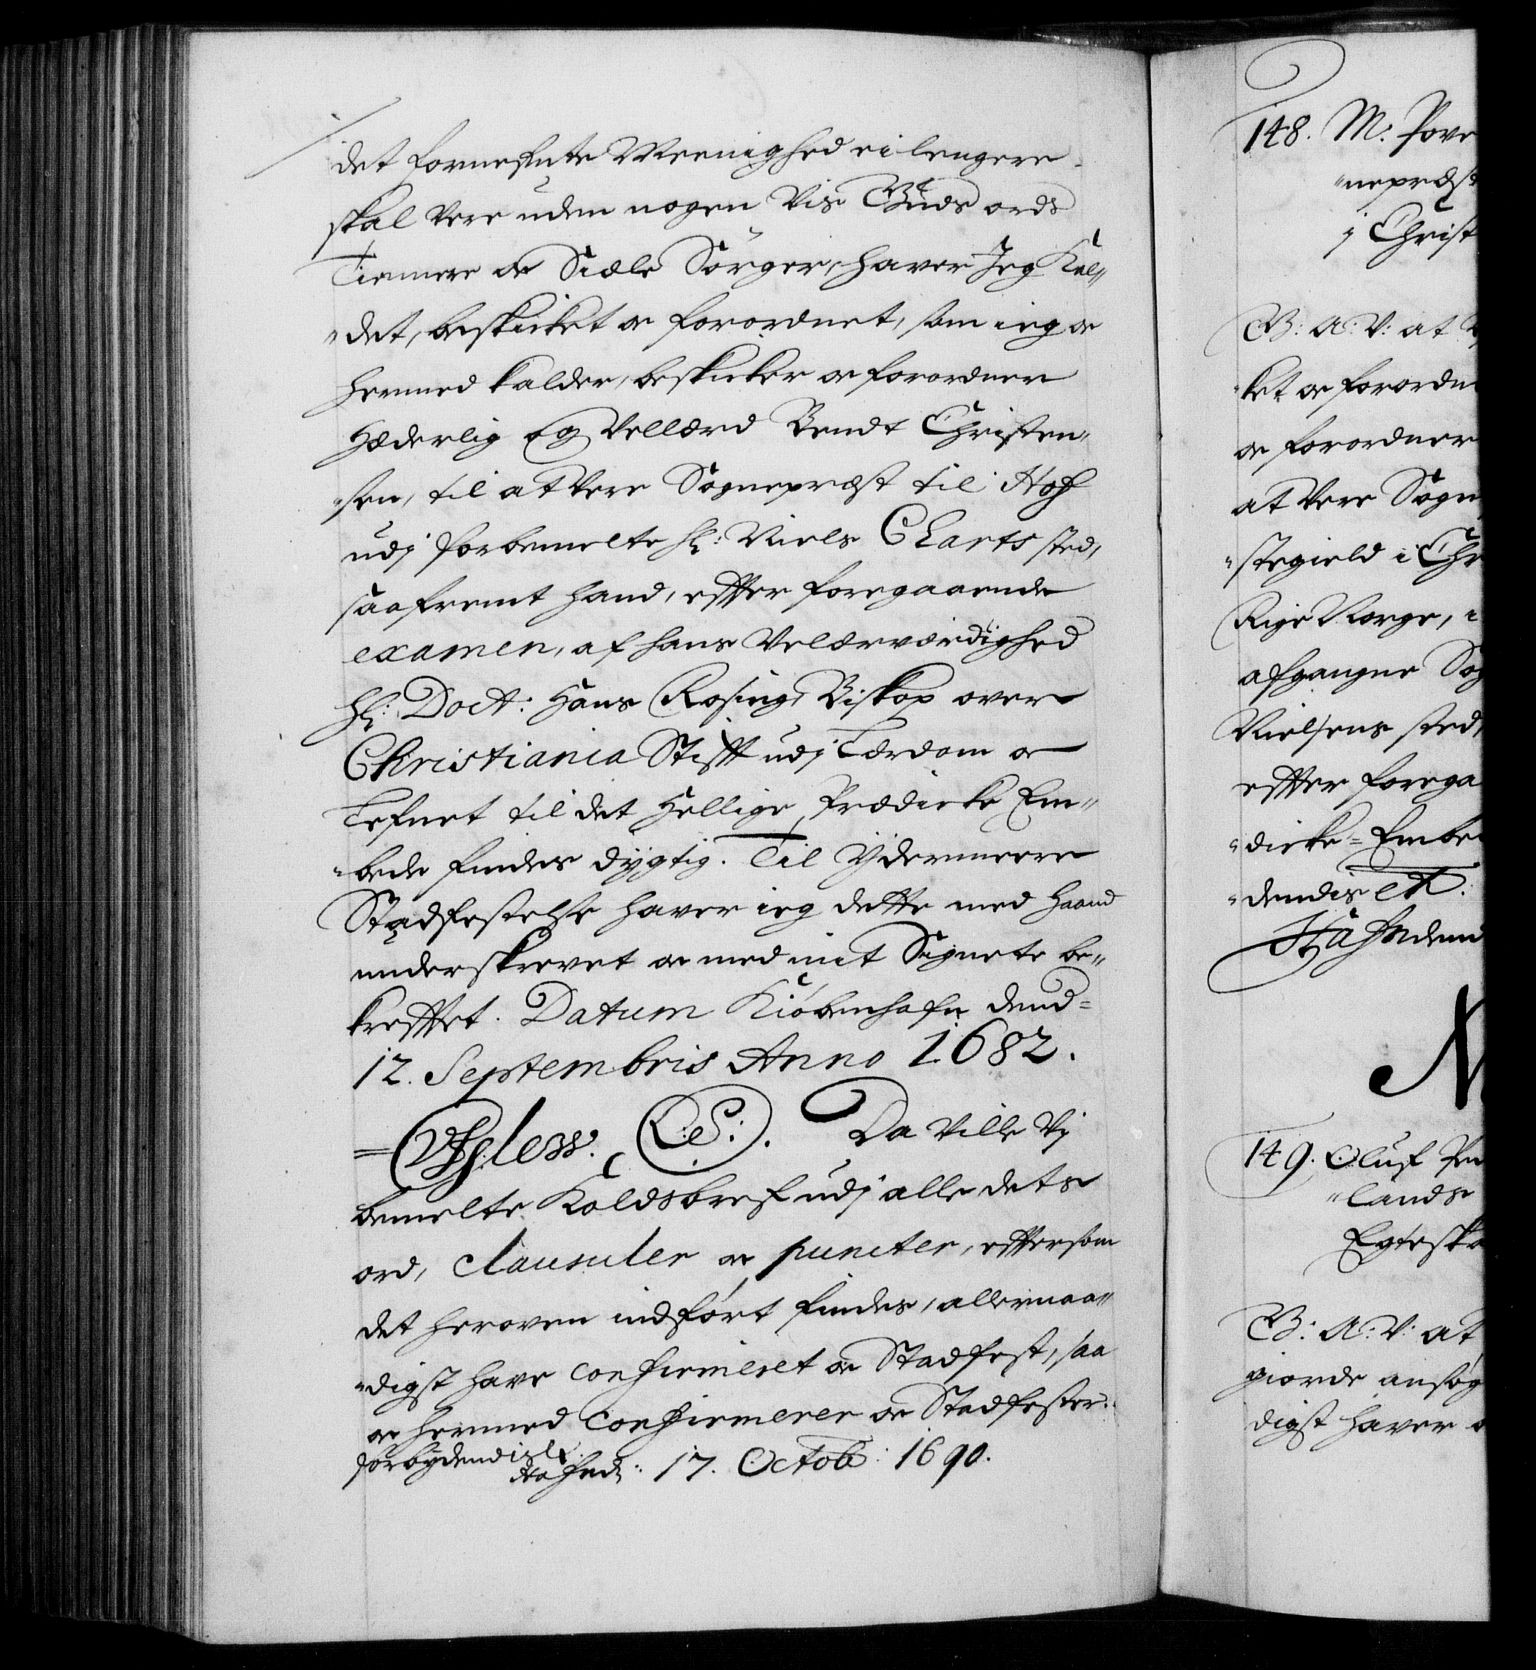 det fornefnte Meenighed ei lengere
skal vere uden nogen vis Guds ords
Tiennere oc Siæle Sörger, haver Jeg Kal„
„det, beskicket oc forordnet, som ieg oc
hermed kalder, beskicker oc forordner
Hæderlig Og Vellærd Bendt Christen„
„sen, til at vere Sognepræst til Hof
udj forbemelte Hr: Niels Charts sted,
saafremt hand, effter foregaaende
examen, af hans Velærværdighed
Hr: Doct: Hans Rosing, Biskop over
Christiania Stifft udj Lærdom oc
Lefnet til det Hellige Prædicke Em„
„bede findes dygtig. Til Ydermeere
Stadfestelse haver ieg dette med Haand
underskrevet oc med mit Signete be„
krefftet. Datum Kiöbenhafn dend
12. Septembris Anno 1682.
L.S. Da ville Vj
bemelte Kaldsbref udj alle dets
ord, clausuler oc puncter, efftersom
det heroven indfört findes, allernaa„
„digst have confirmeret oc Stadfest, saa
oc hermed confirmerer oc Stadfester.
forbydendis etc.
Hafnie: 17. Octob: 1690.
148. M: Pove
„nepræst
j Christ
G: A: V: at
„ket oc forordn
oc forordner
at vere Sogn
„stegield i Chr
Rige Norge, i
afgangne Sog
Nielsens sted,
effter forega
„dicke-Embe
„dendis etc.
Hafn dend
N
149. Oluf
„lands
Egteska
G: A: V: at
giorde ansög
digst haver